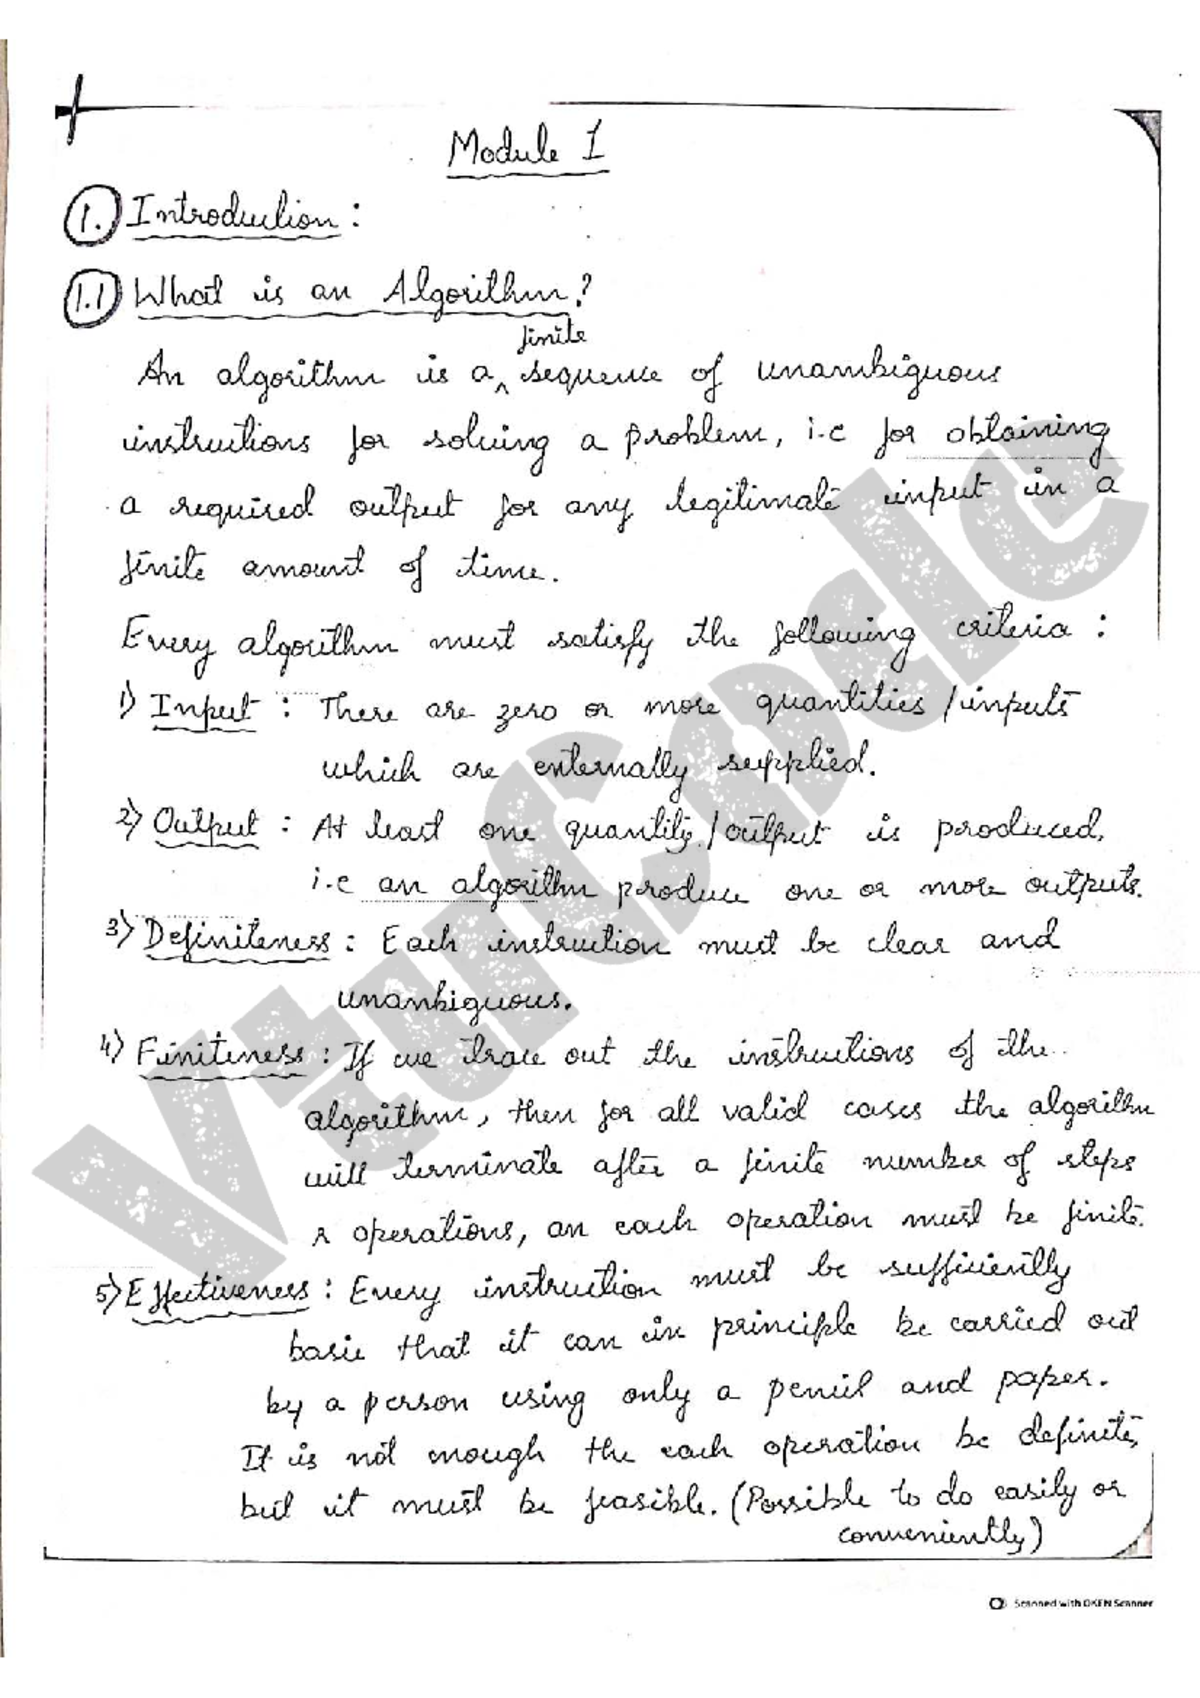 Module 1
1. Introduction :
1.1 What is an Algorithm?
finite
An algorithm is a ^ sequence of unambiguous
instructions for solving a problem, i.e for obtaining
a required output for any legitimate input in a
finite amount of time.
Every algorithm must satisfy the following criteria :
1) Input : There are zero or more quantities / inputs
which are externally supplied.
2) Output : At least one quantity / output is produced,
i.e an algorithm produce one or more outputs.
3) Definiteness : Each instruction must be clear and
unambiguous.
4) Finiteness : If we trace out the instructions of the
algorithm, then for all valid cases the algorithm
will terminate after a finite number of steps
r operations, an each operation must be finite.
5) Effectiveness : Every instruction must be sufficiently
basic that it can in principle be carried out
by a person using only a pencil and paper.
It is not enough the each operation be definite,
but it must be feasible. (Possible to do easily or
conveniently)
VtuCode
Scanned with OKEN Scanner